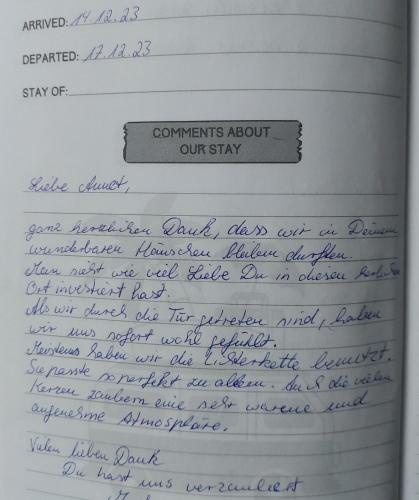 ARRIVED: 14.12.23
DEPARTED: 17.12.23
STAY OF:
COMMENTS ABOUT
OUR STAY
Liebe Annet,
ganz herzlichen Dank, dass wir in Deinem
wunderbaren Häuschen bleiben durften.
Man sieht wie viel Liebe Du in diesen
Ort investiert hast.
Als wir durch die Tür getreten sind, haben
wir uns sofort wohl gefühlt.
Meistens haben wir die Lichterkette benutzt.
Sie passte so perfekt zu allem. Auch die vielen
Kerzen zaubern eine sehr warme und
angenehme Atmosphäre.
Vielen lieben Dank
Du hast uns verzaubert